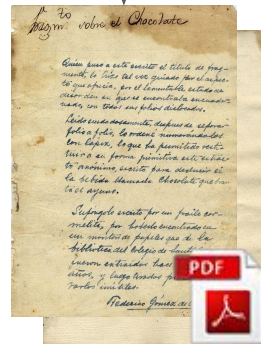 20
sobre el Chocolate
Quien puso a este escrito el titulo de frag-
mento, lo hizo tal vez guiado por el aspec-
to que ofrecia, por el lamentable estado de
desorden en que se encontraba encuader-
nado, con todos sus folios dislocados.
Leido cuidadosamente, después de separar
folio a folio, lo ordené numerandolos
con lapiz, lo que ha permitido resti-
tuir a su forma primitiva este
anónimo, escrito para
la bebida llamada Chocolate que
el ayuno.
Supongolo escrito por un fraile car-
melita, por haberlo encontrado en
un monton de papeles que de la
biblioteca del Colegio de
fueron extraidos hace
años, y luego tirados por
inútiles.
Federico Gómez de
PDF